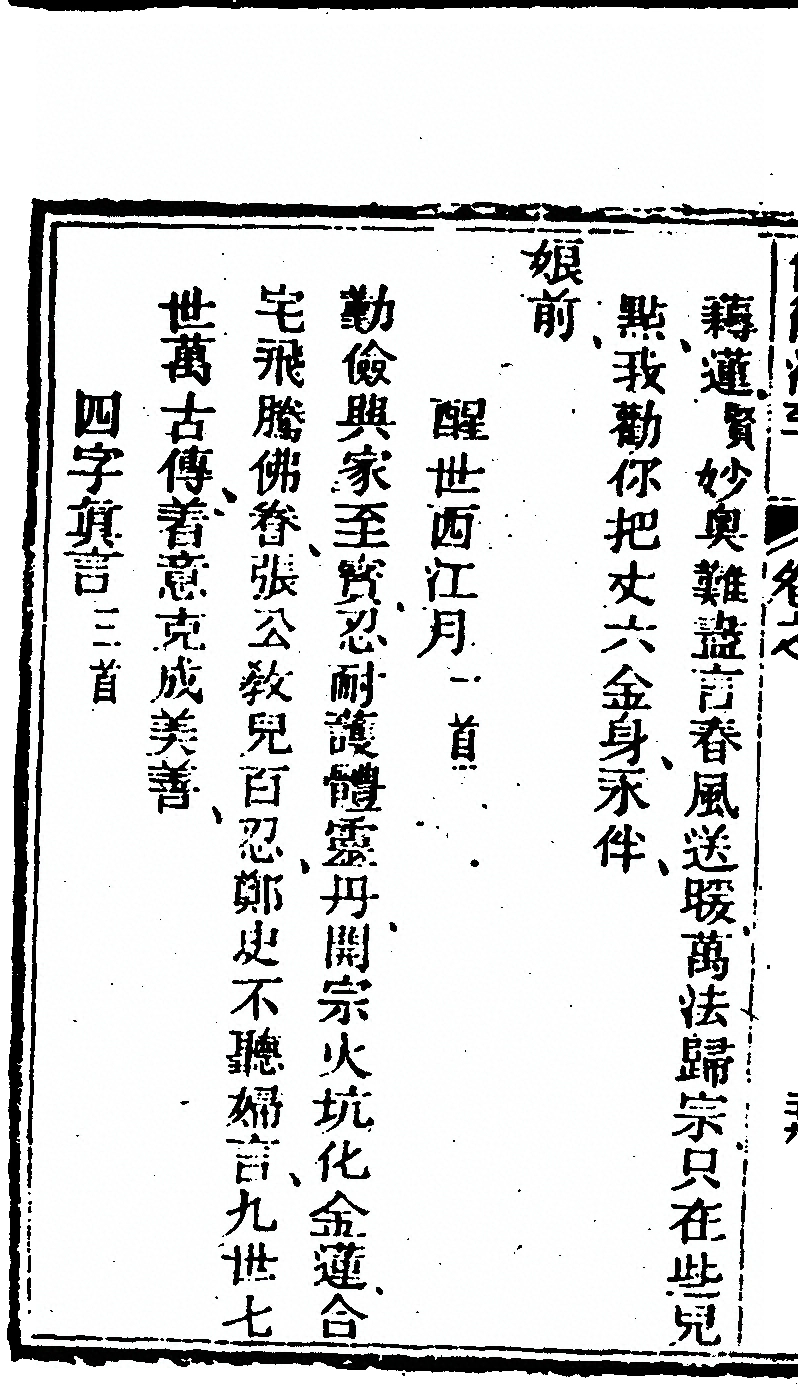 藕蓮、賢妙奧難盡言春風送暖、萬法歸宗、只在些兒
點、我勸你把丈六金身、永伴、
娘前、
醒世西江月 一首
勤儉興家至寳、忍耐護體靈丹、開宗火坑化金蓮、合
宅飛騰佛眷、張公敎兒百忍、鄭史不聽婦言、九世七
世萬古傳、着意克成美善、
四字眞言 三首